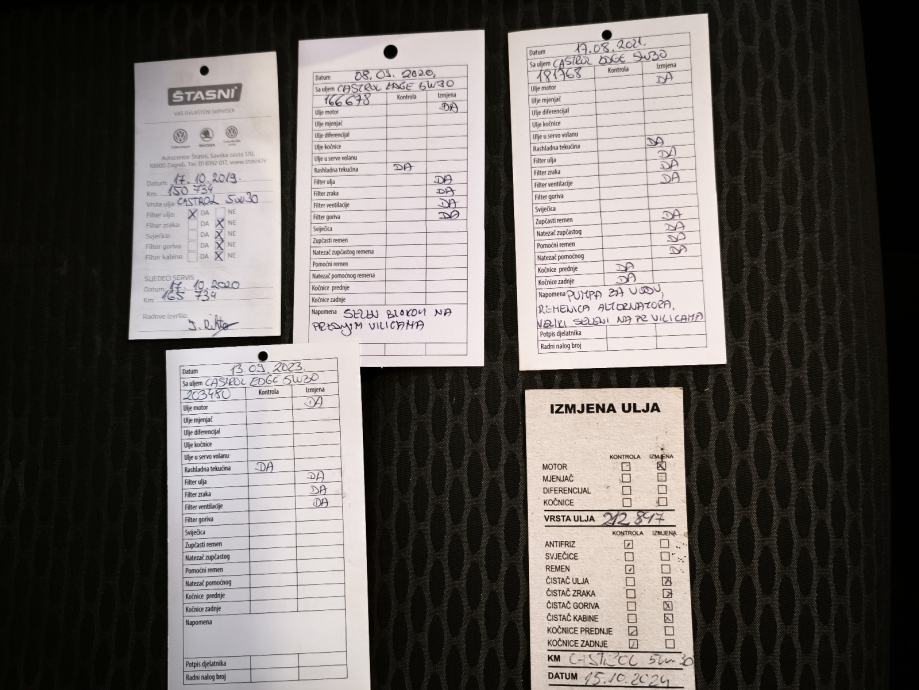 ŠTASNI
VAŠ OVLAŠTENI SERVISER
Autocentar Štasni, Savska cesta 170,
10000 Zagreb, Tel: 01 6192 017, www.stasni.hr
Datum: 17. 10. 2019.
Km: 150 734
Vrsta ulja: CASTROL 5W30
Filter ulja: X DA NE
Filter zraka: DA X NE
Svjećice: DA X NE
Filter goriva: DA X NE
Filter kabine: DA X NE
SLJEDEĆI SERVIS
Datum: 17. 10. 2020
Km: 165 734
Radove izvršio:
Datum 08. 09. 2020.
Sa uljem CASTROL EDGE 5W30
166678 Kontrola Izmjena
Ulje motor DA
Ulje mjenjač
Ulje diferencijal
Ulje kočnice
Ulje u servo volanu
Rashladna tekućina DA
Filter ulja DA
Filter zraka DA
Filter ventilacije DA
Filter goriva DA
Svječica
Zupčasti remen
Natezač zupčastog remena
Pomoćni remen
Natezač pomoćnog remena
Kočnice prednje
Kočnice zadnje
Napomena SELEN BLOKOVI NA
PREDNJIM VILICAMA
Datum 17.08.2021.
Sa uljem CASTROL EDGE 5W30
181768 Kontrola Izmjena
Ulje motor DA
Ulje mjenjač
Ulje diferencijal
Ulje kočnice
Ulje u servo volanu
Rashladna tekućina DA
Filter ulja DA
Filter zraka DA
Filter ventilacije DA
Filter goriva
Svječica
Zupčasti remen DA
Natezač zupčastog DA
Pomoćni remen DA
Natezač pomoćnog DA
Kočnice prednje DA
Kočnice zadnje DA
Napomena PUMPA ZA VODU,
REMENICA ALTERNATORA,
VELIKI SELENI NA PR VILICAMA
Potpis djelatnika
Radni nalog broj
Datum 13 09. 2023.
Sa uljem CASTROL EDGE 5W30
203480 Kontrola Izmjena
Ulje motor DA
Ulje mjenjač
Ulje diferencijal
Ulje kočnice
Ulje u servo volanu
Rashladna tekućina DA
Filter ulja DA
Filter zraka DA
Filter ventilacije DA
Filter goriva
Svječica
Zupčasti remen
Natezač zupčastog
Pomoćni remen
Natezač pomoćnog
Kočnice prednje
Kočnice zadnje
Napomena
Potpis djelatnika
Radni nalog broj
IZMJENA ULJA
KONTROLA IZMJENA
MOTOR
MJENJAČ
DIFERENCIJAL
KOČNICE
VRSTA ULJA 212 847
KONTROLA IZMJENA
ANTIFRIZ
SVJEČICE
REMEN
ČISTAČ ULJA
ČISTAČ ZRAKA
ČISTAČ GORIVA
ČISTAČ KABINE
KOČNICE PREDNJE
KOČNICE ZADNJE
KM CASTROL 5W30
DATUM 15.10.2024